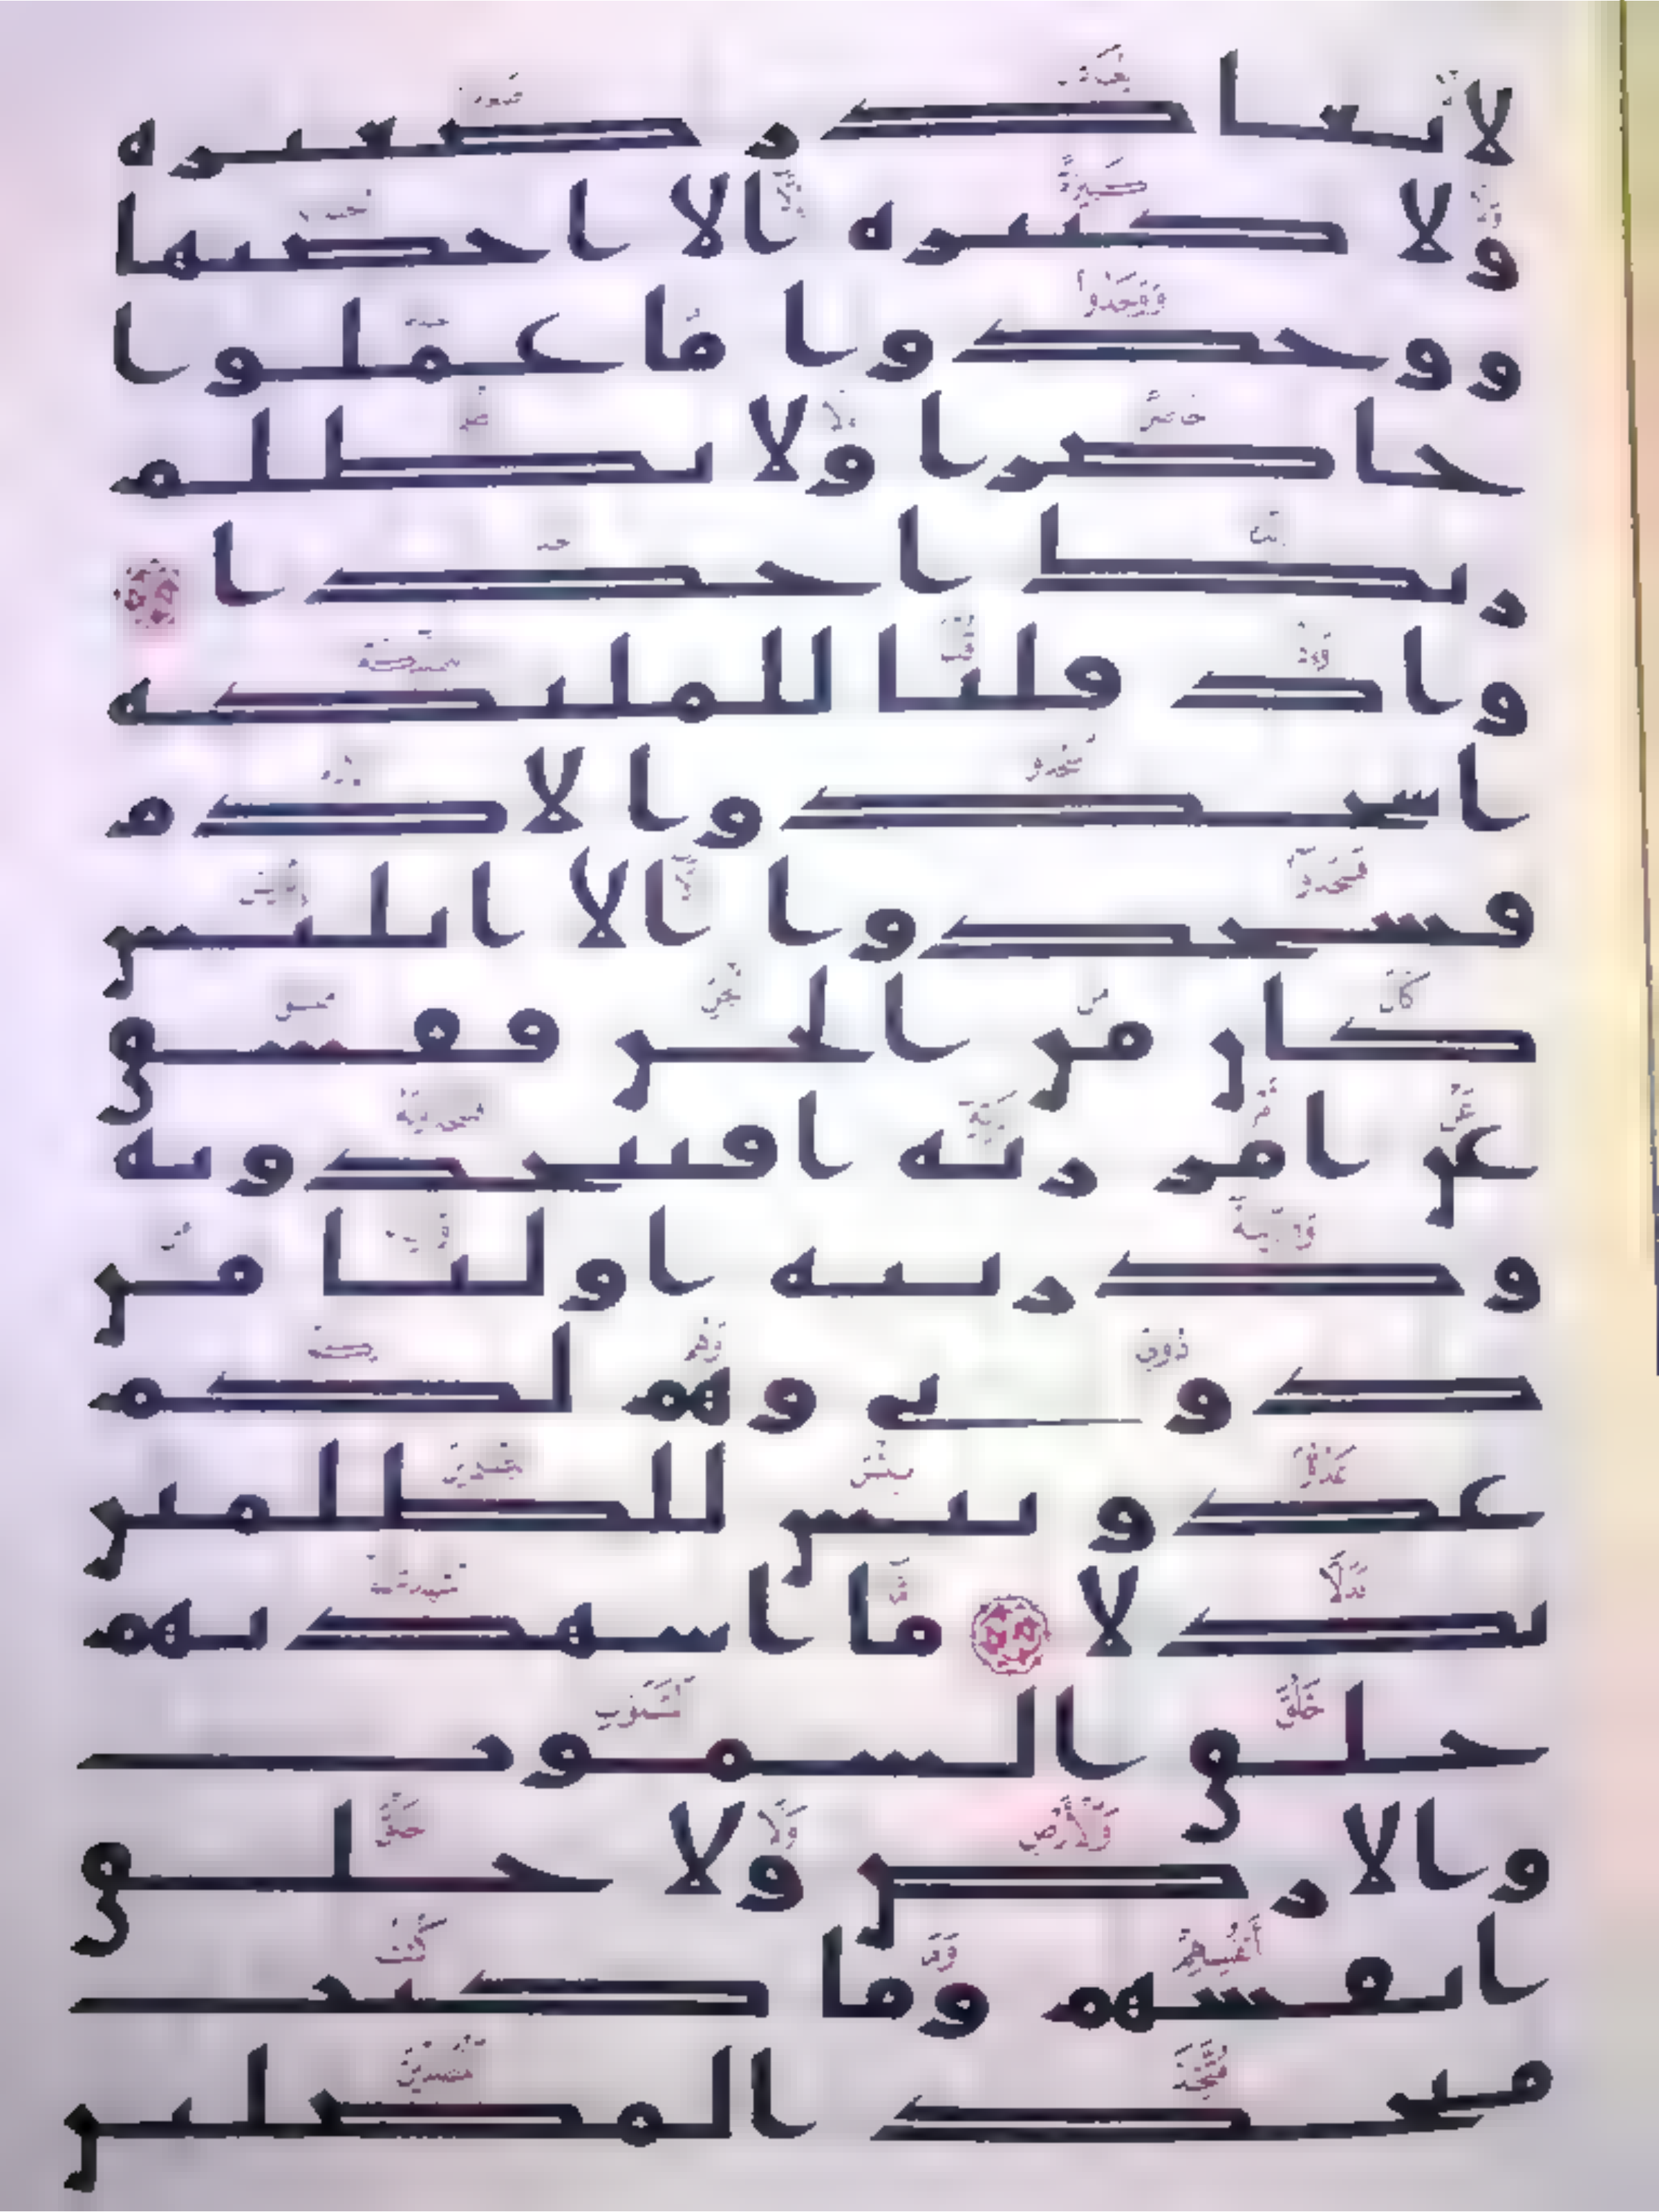 لا يغادر صغيره
ولا كبيره الا احصيها
ووجدوا ما عملوا
حاضرا ولا يظلم
ربك احدا
واذ قلنا للمليكه
اسجدوا لادم
فسجدوا الا ابليس
كان من الجن ففسق
عن امر ربه افتتخدونه
وذريته اوليا من
دوني وهم لكم
عدو بيس للظلمين
بدلا ما اشهدتهم
خلق السموت
والارض ولا خلق
انفسهم وما كنت
متخذ المضلين